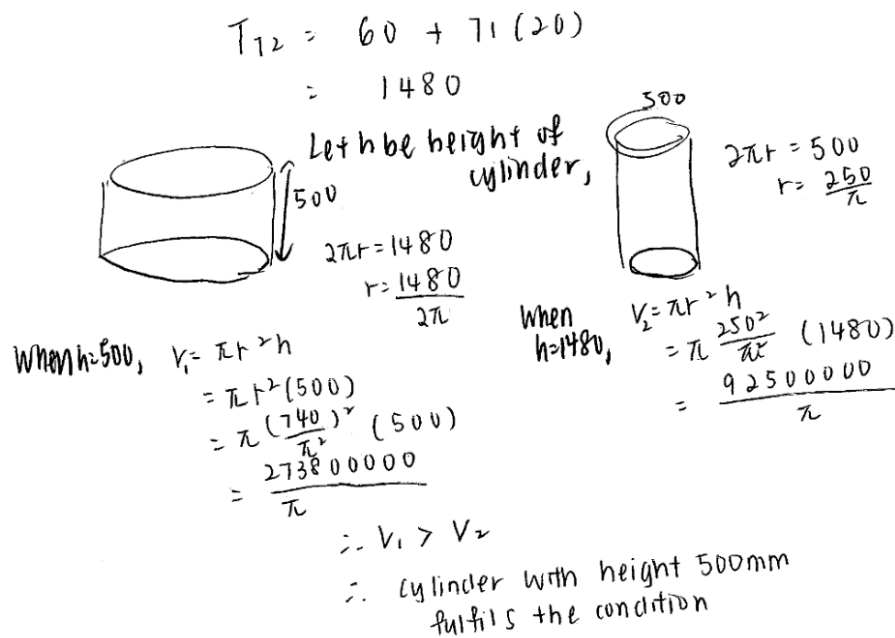 T₇₂ = 60 + 71 (20)
= 1480
Let h be height of
cylinder,
500
2πr = 1480
r = 1480/2π
When h=500, V₁ = πr²h
= πr²(500)
= π (740)²/π² (500)
= 273800000/π
500
2πr = 500
r = 250/π
When
h=1480,
V₂ = πr²h
= π 250²/π² (1480)
= 92500000/π
∴ V₁ > V₂
∴ cylinder with height 500mm
fulfils the condition